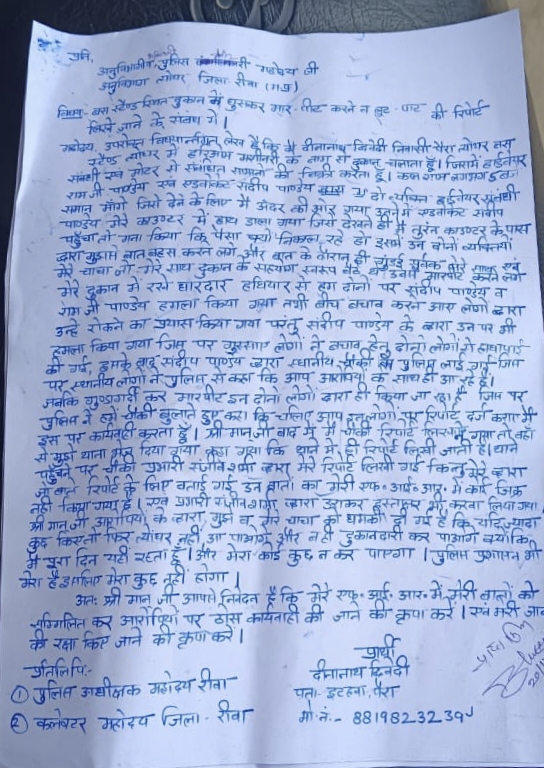 प्रति,
अनुविभागीय पुलिस अधिकारी महोदय जी
अनुविभाग त्योंथर जिला-रीवा (म.प्र)
विषय:- बस स्टैण्ड स्थित दुकान में घुसकर मार-पीट करने व लूट-पाट की रिपोर्ट
लिखे जाने के संबंध में।
महोदय, उपरोक्त विषयान्तर्गत लेख है कि मैं दीनानाथ द्विवेदी निवासी पैरा त्योंथर बस
स्टैण्ड त्योंथर में हरिओम मशीनरी के नाम से दुकान चलाता हूँ। जिसमें हार्डवेयर
संबंधी एवं मोटर से संबंधित सामानों की बिक्री करता हूँ। कल शाम लगभग 5 बजे
राम जी पाण्डेय एवं एडवोकेट संदीप पाण्डेय दो व्यक्ति हार्डवेयर संबंधी
समान माँगे जिसे देने के लिए मैं अंदर की ओर गया उतने में एडवोकेट संदीप
पाण्डेय मेरे काउण्टर में हाथ डाला गया जिसे देखते ही मैं तुरंत काउण्टर के पास
पहुँचा तो मना किया कि पैसा क्यों निकाल रहे हो इसमें उन दोनों व्यक्तियों
द्वारा मुझसे बात बहस करने लगे और बात के दौरान ही गुंडई पूर्वक मेरे साथ एवं
मेरे चाचा जो मेरे साथ दुकान के सहयोग स्वरूप बैठे थे उनसे मारपीट करने लगे
मेरे दुकान में रखे धारदार हथियार से हम दोनों पर संदीप पाण्डेय व
राम जी पाण्डेय हमला किया गया तभी बीच बचाव करने आए लोगों द्वारा
उन्हें रोकने का प्रयास किया गया परंतु संदीप पाण्डेय के द्वारा उन पर भी
हमला किया गया जिस पर गुस्साए लोगों ने बचाव हेतु दोनों लोगों से हाथापाई
की गई, इसके बाद संदीप पाण्डेय द्वारा स्थानीय चौकी से पुलिस लाई गई जिस
पर स्थानीय लोगों ने पुलिस से कहा कि आप आरोपियों के साथ ही आ रहे हैं।
जबकि गुण्डागर्दी कर मारपीट इन दोनों लोगों द्वारा ही किया जा रहा है जिस पर
पुलिस ने हमें चौकी बुलाते हुए कहा कि चलिए आप इन लोगों पर रिपोर्ट दर्ज करा मैं
इस पर कार्यवाही करता हूँ। श्री मान जी बाद में मैं चौकी रिपोर्ट लिखाने गया तो वहाँ
से मुझे थाना भेज दिया गया कहा गया कि थाने में ही रिपोर्ट लिखी जाती है। थाने
पहुँचने पर चौकी प्रभारी संजीव शर्मा द्वारा मेरे रिपोर्ट लिखी गई किन्तु मेरे द्वारा
जो बात रिपोर्ट के लिए बताई गई उन बातों का मेरी एफ.आई.आर. में कोई जिक्र
नहीं किया गया है। एवं प्रभारी संजीव शर्मा द्वारा डराकर हस्ताक्षर भी करवा लिया गया।
श्री मान जी आरोपियों के द्वारा मुझे व मेरे चाचा को धमकी दी गई है कि यदि ज्यादा
कुछ किए तो फिर त्योंथर नहीं आ पाओगे और नहीं दुकानदारी कर पाओगे क्योंकि
मैं पूरा दिन यहीं रहता हूँ। और मेरा कोई कुछ न कर पाएगा। पुलिस प्रशासन भी
मेरा है इसलिए मेरा कुछ नहीं होगा।
अतः श्री मान जी आपसे निवेदन है कि मेरे एफ.आई.आर. में मेरी बातों को
सम्मिलित कर आरोपियों पर ठोस कार्यवाही की जाने की कृपा करें। एवं मेरी जान
की रक्षा किए जाने की कृपा करें।
प्रार्थी
दीनानाथ द्विवेदी
पता- इटहवा, पैरा
मो.नं.- 8819823239
प्रतिलिपि:-
① पुलिस अधीक्षक महोदय रीवा
② कलेक्टर महोदय जिला-रीवा